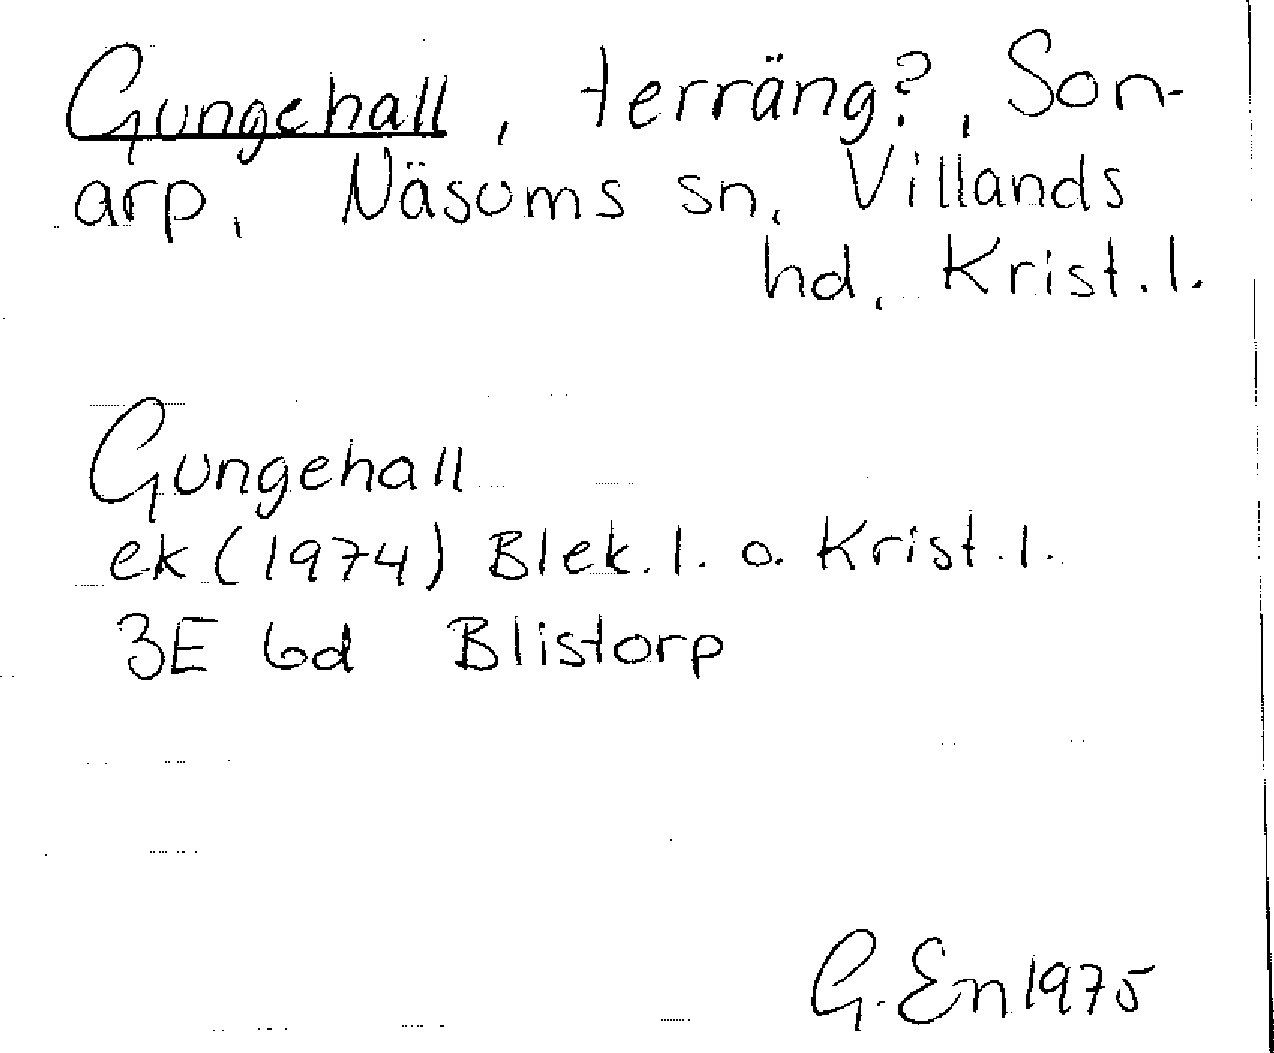 Gungehall, terräng?, Son-
arp, Näsums sn, Villands
hd, Krist.l.
Gungehall
ek (1974) Blek.l. o. Krist.l.
3E 6d Blistorp
G.En 1975